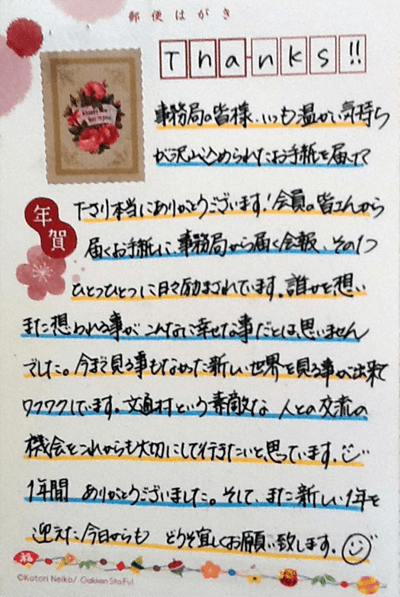 郵便はがき
Thanks!!
事務局の皆様、いつも温かい気持ち
が沢山込められたお手紙を届けて
年賀
下さり本当にありがとうございます!会員の皆さんから
届くお手紙に、事務局から届く会報、その1つ
ひとつひとつに日々励まされています。誰かを想い
また想われる事がこんなに幸せな事だとは思いません
でした。今まで見る事もなかった新しい世界を見る事が出来て
ワクワクしています。文通村という素敵な 人との交流の
機会をこれからも大切にして行きたいと思っています。
1年間 ありがとうございました。そして、また新しい1年を
迎えた今日からも どうぞ宜しくお願い致します。
福
©Kotori Neiko/ Gakken Sta:Ful